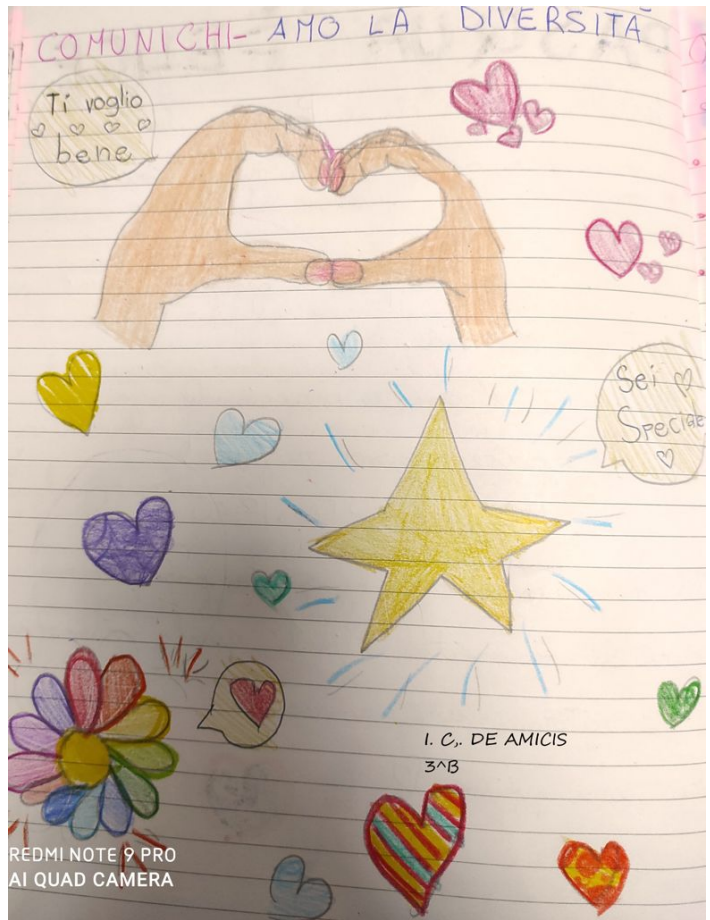 COMUNICHI- AMO LA DIVERSITÀ
Ti voglio
bene
Sei
SPECIALE
I. C,. DE AMICIS
3^B
REDMI NOTE 9 PRO
AI QUAD CAMERA